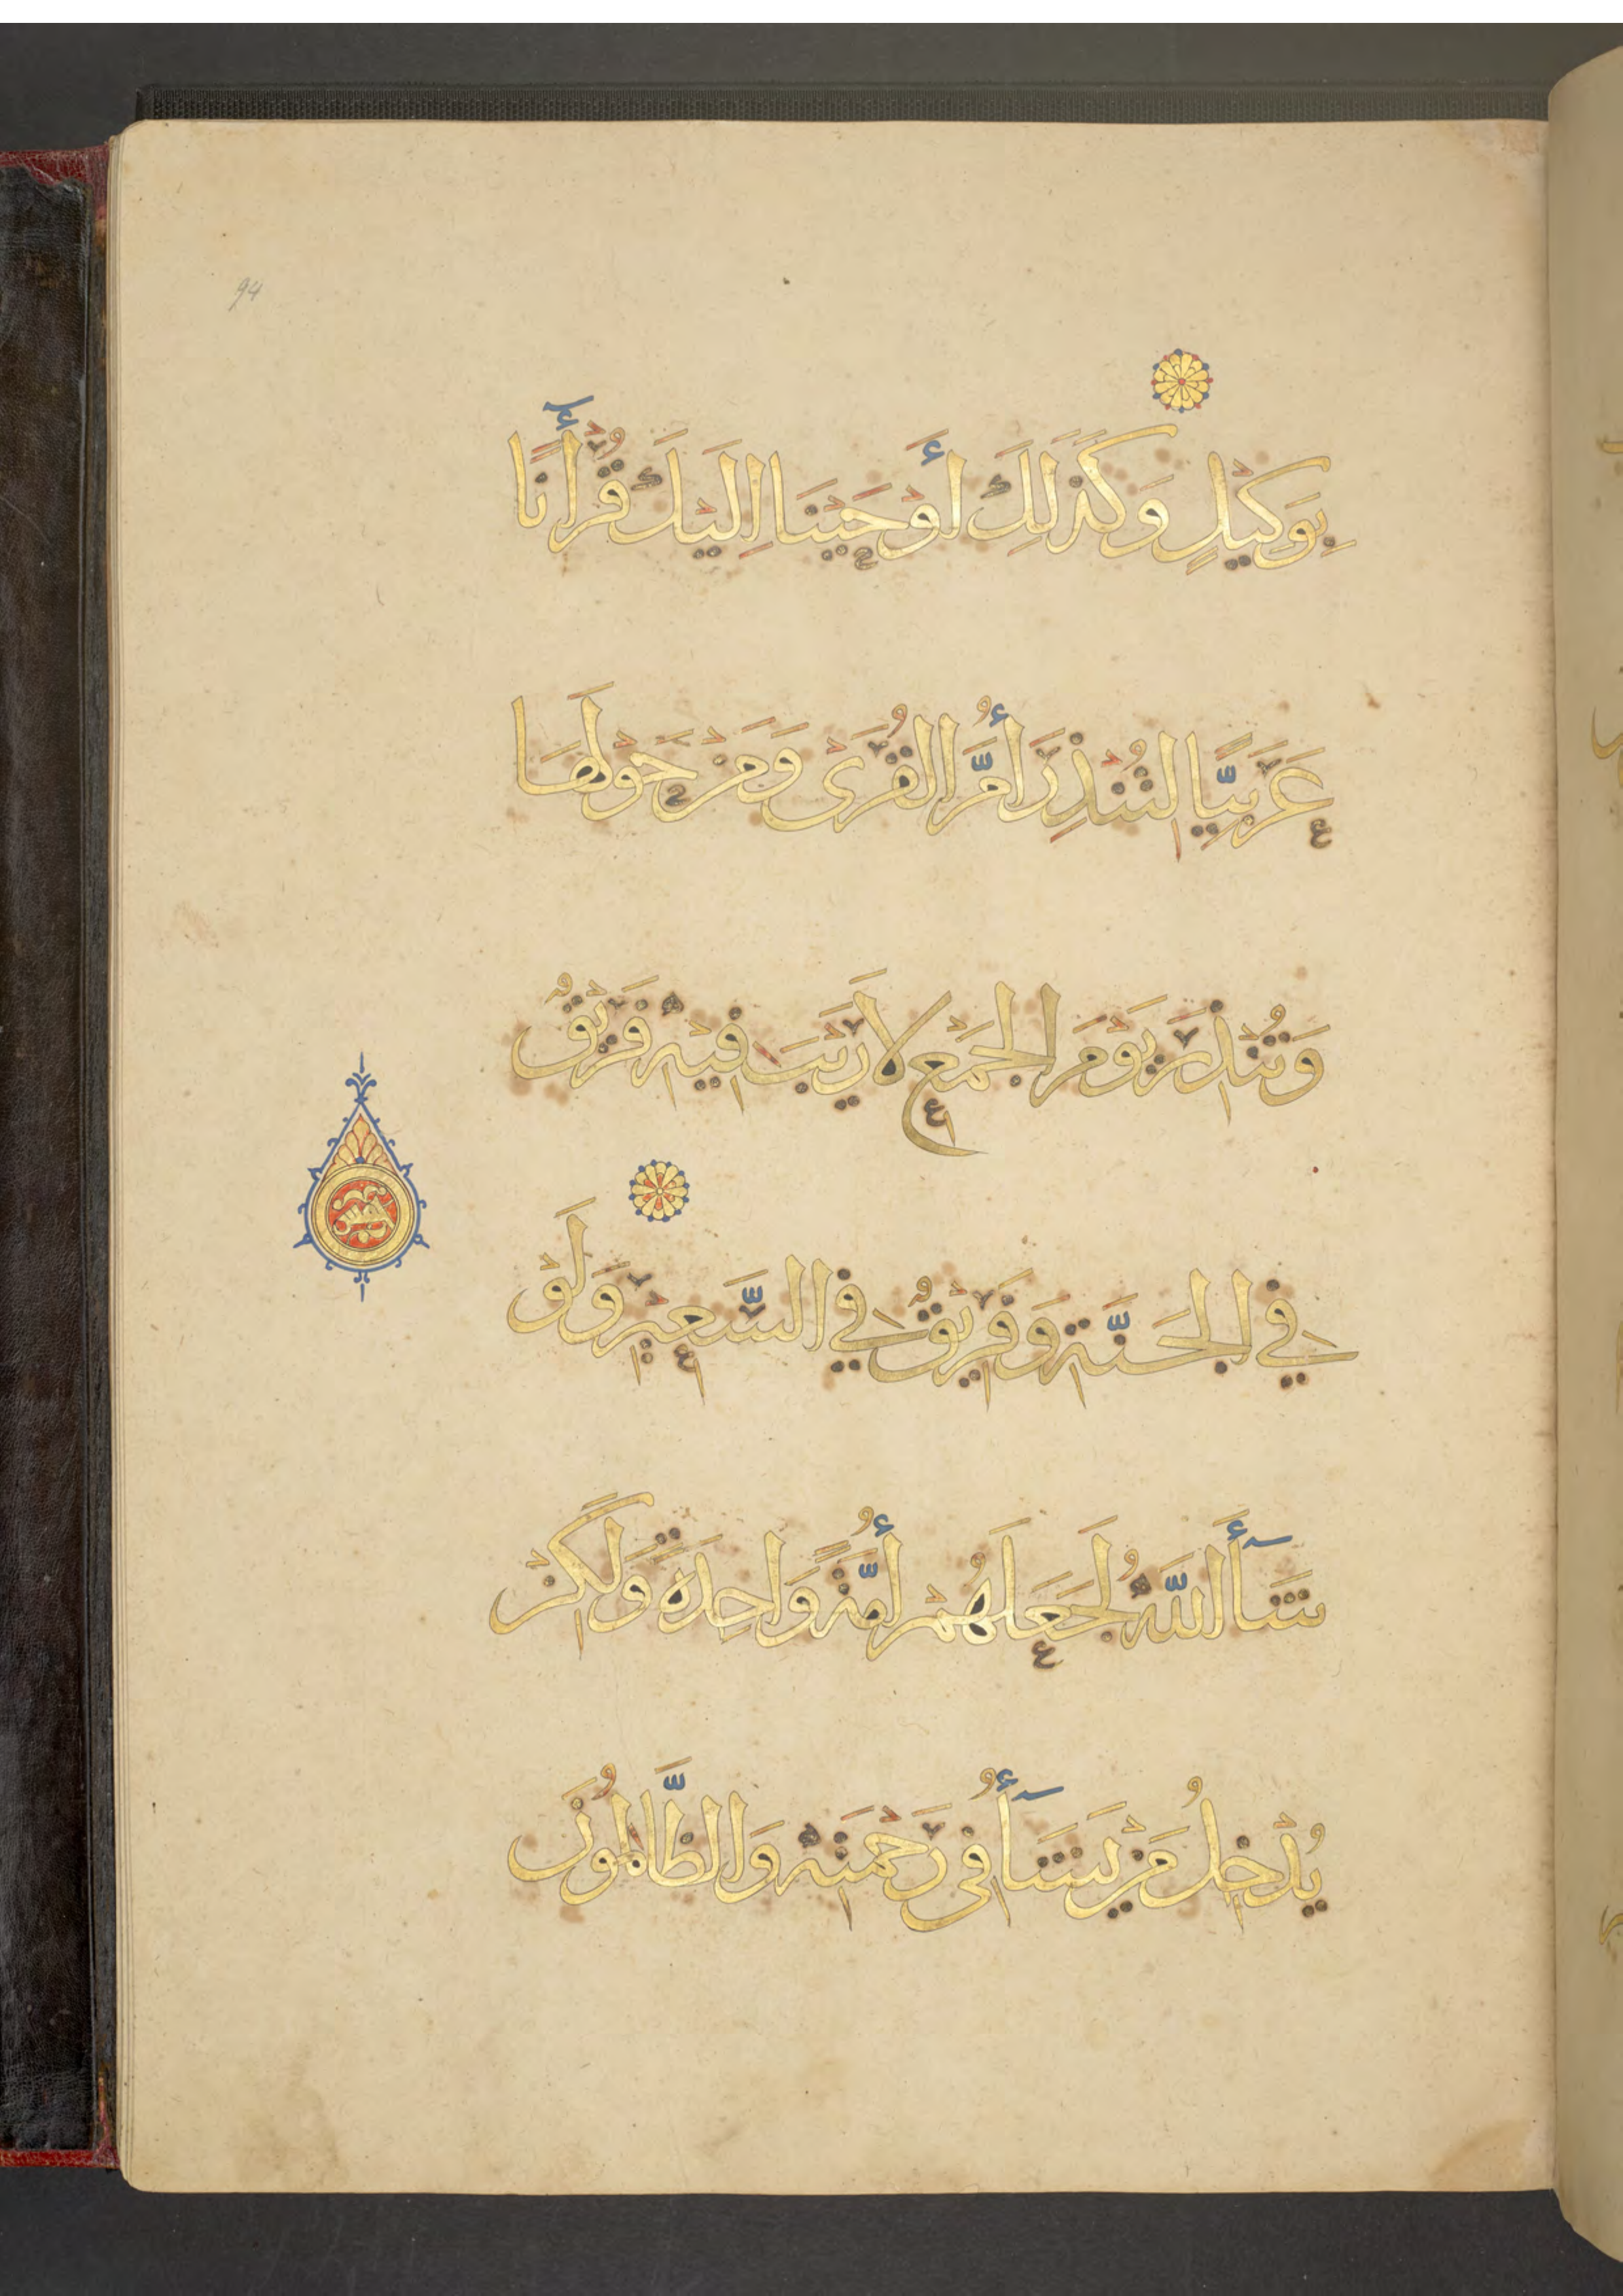 94
بِوَكِيْلٍ وَكَذَلِكَ أَوْحَيْنَا إِلَيْكَ قُرْأٰنًا
عَرَبِيًّا لِتُنْذِرَ أُمَّ الْقُرَىْ وَمَنْ حَوْلَهَا
وَتُنْذِرَ يَوْمَ الْجَمْعِ لَا رَيْبَ فِيْهِ فَرِيْقٌ
فِي الْجَنَّةِ وَفَرِيْقٌ فِي السَّعِيْرِ وَلَوْ
شَآأَ اللَّهُ لَجَعَلَهُمْ أُمَّةً وَاحِدَةً وَلَكِنْ
يُدْخِلُ مَنْ يَشَآأُ فِي رَحْمَتِهِ وَالظَّالِمُونَ